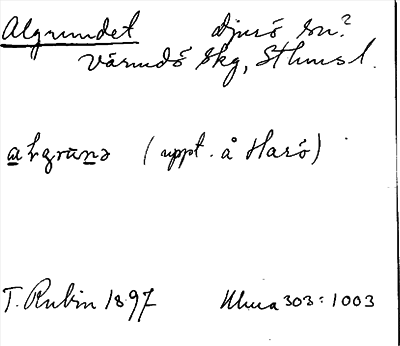 Algrundet Djurö sn?
Värmdö skg, Sthms l.
(uppt. å Harö)
T. Rubin 1897 303:1003